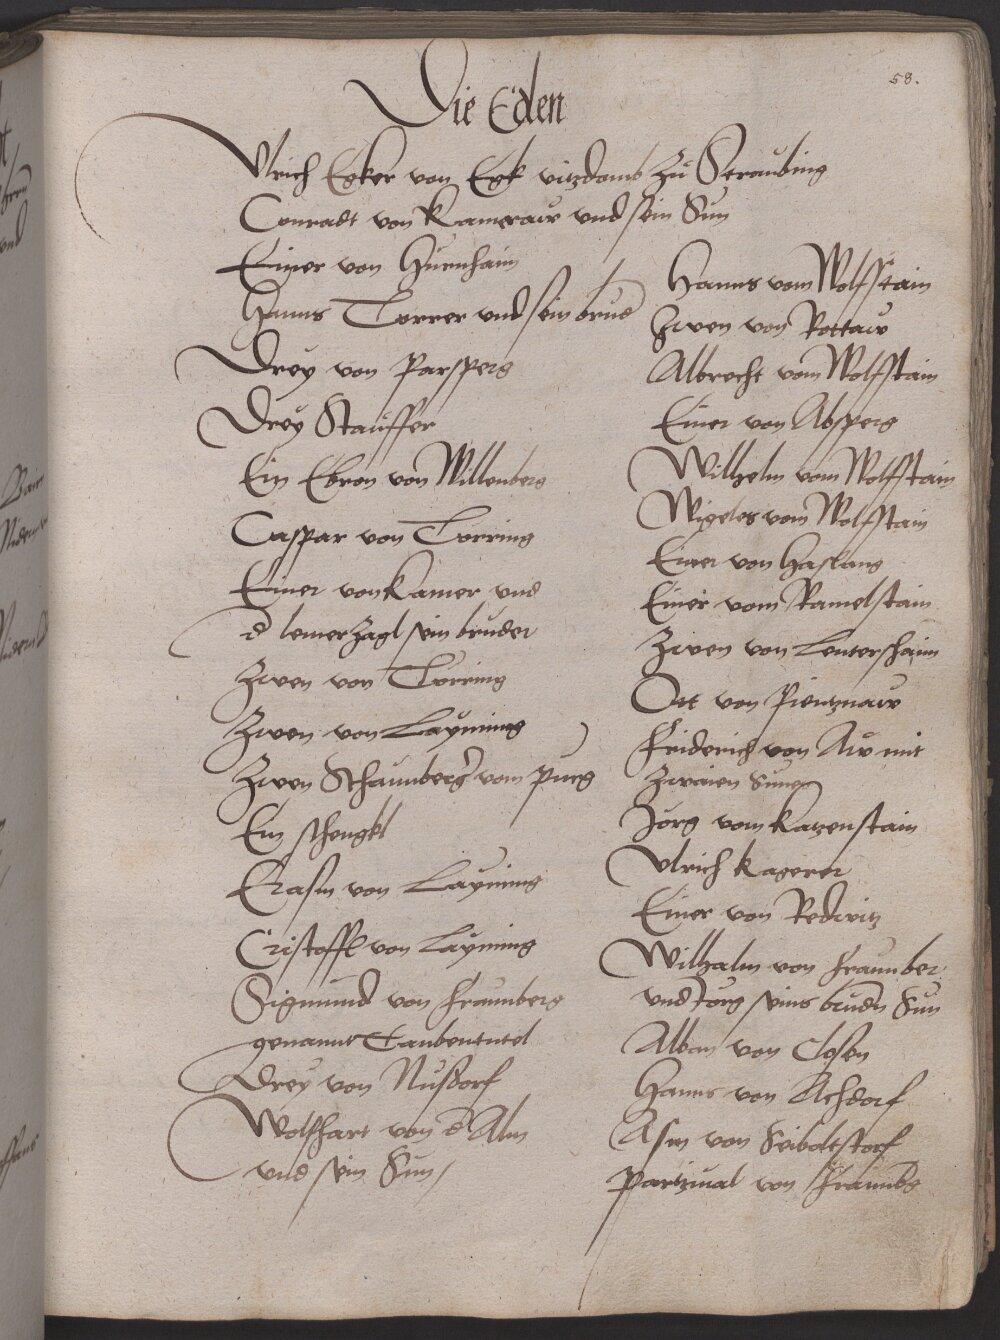 58.
Die Edlen
Ulrich Egker von Egk vitzdomb zu Straubing
Conradt von Kameraw vnd sein Sun
Einer von Hürnhaim
Hanns Torrer vnd sein brud
Drey von Parsperg
Drey Stauffer
Ein Ebron von Willenberg
Caspar von Torring
Einer von Kamer vnd
d lemerzagl sein bruder
Zwen von Torring
Zwen von Layming
Zwen Schaunberg vom purg
Ein schengkl
Erasm von Layming
Cristoffl von Layming
Sigmund von Fraunberg
genannt Taubentutel
Drey von Nusdorf
Wolfhart von d Alm
vnd sein Sun
Hanns vom Wolfstain
Zwen von Rottaw
Albrecht vom Wolfstain
Einer von Absperg
Wilhelm vom Wolfstain
Wigeles vom Wolfstain
Einer von Haslang
Einer vom Ramelstain
Zwen von Lentershaim
Ott von Pientznaw
Friderich von Aw mit
Zwaien Sunen
Jorg vom Katzenstain
Ulrich Kagerer
Einer von Redwitz
Wilhalm von Fraunber
vnd Jorg seins brudn Sun
Alban von Closen
Hanns von Achdorf
Asm von Seiboltstorf
Partzival von Fraunbg